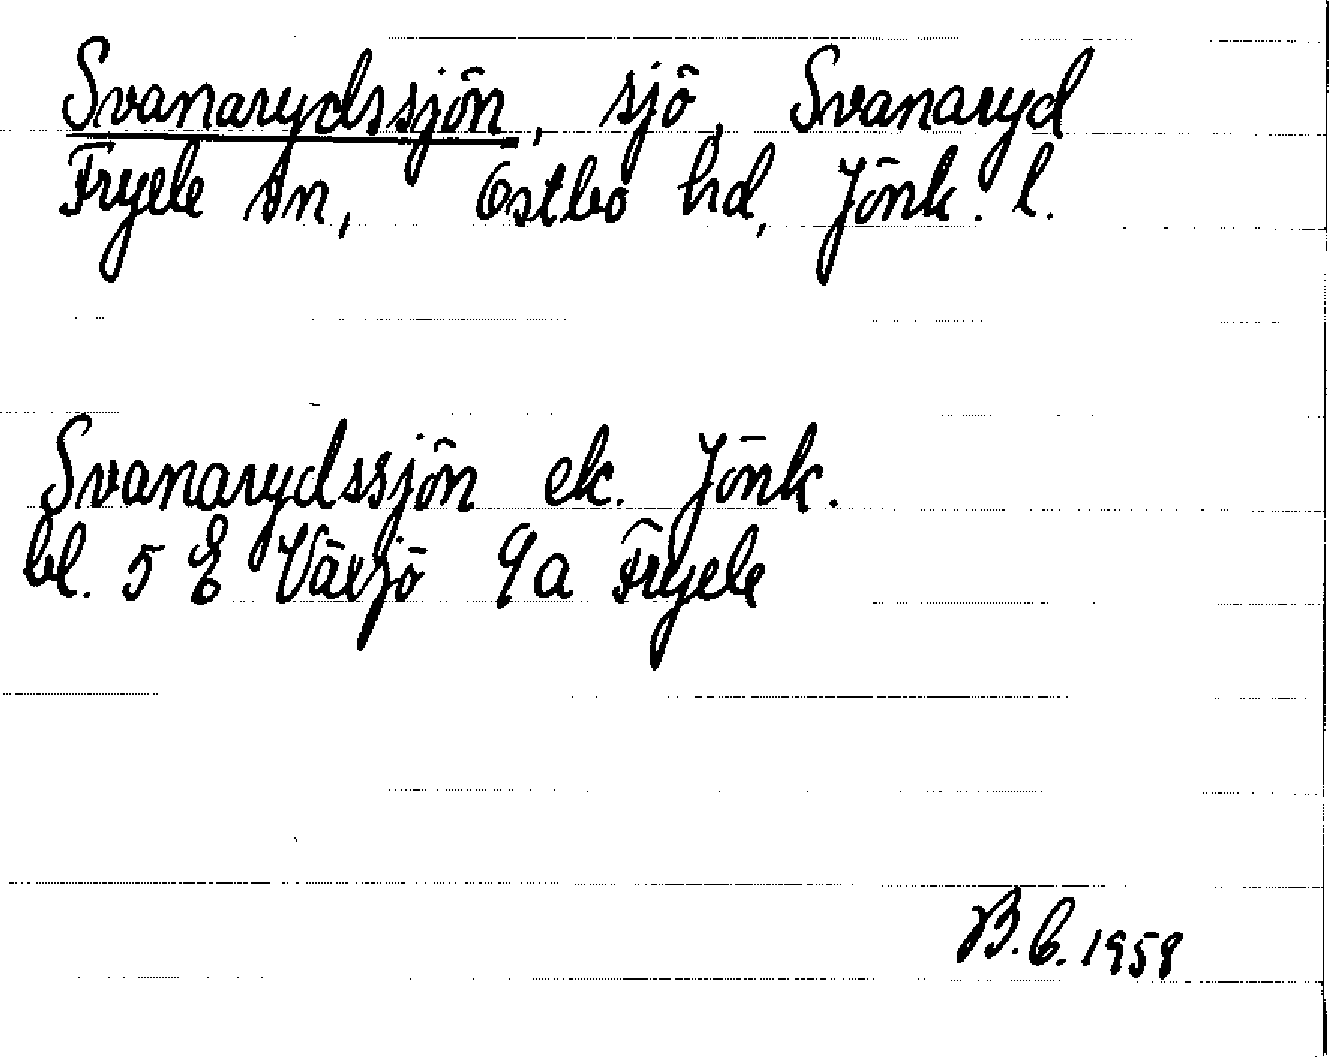 Svanarydssjön, sjö, Svanaryd
Fryele sn, Östbo hd, Jönk. l.
Svanarydssjön ek. Jönk.
bl. 5 E Växjö 9a Fryele
B.C. 1958